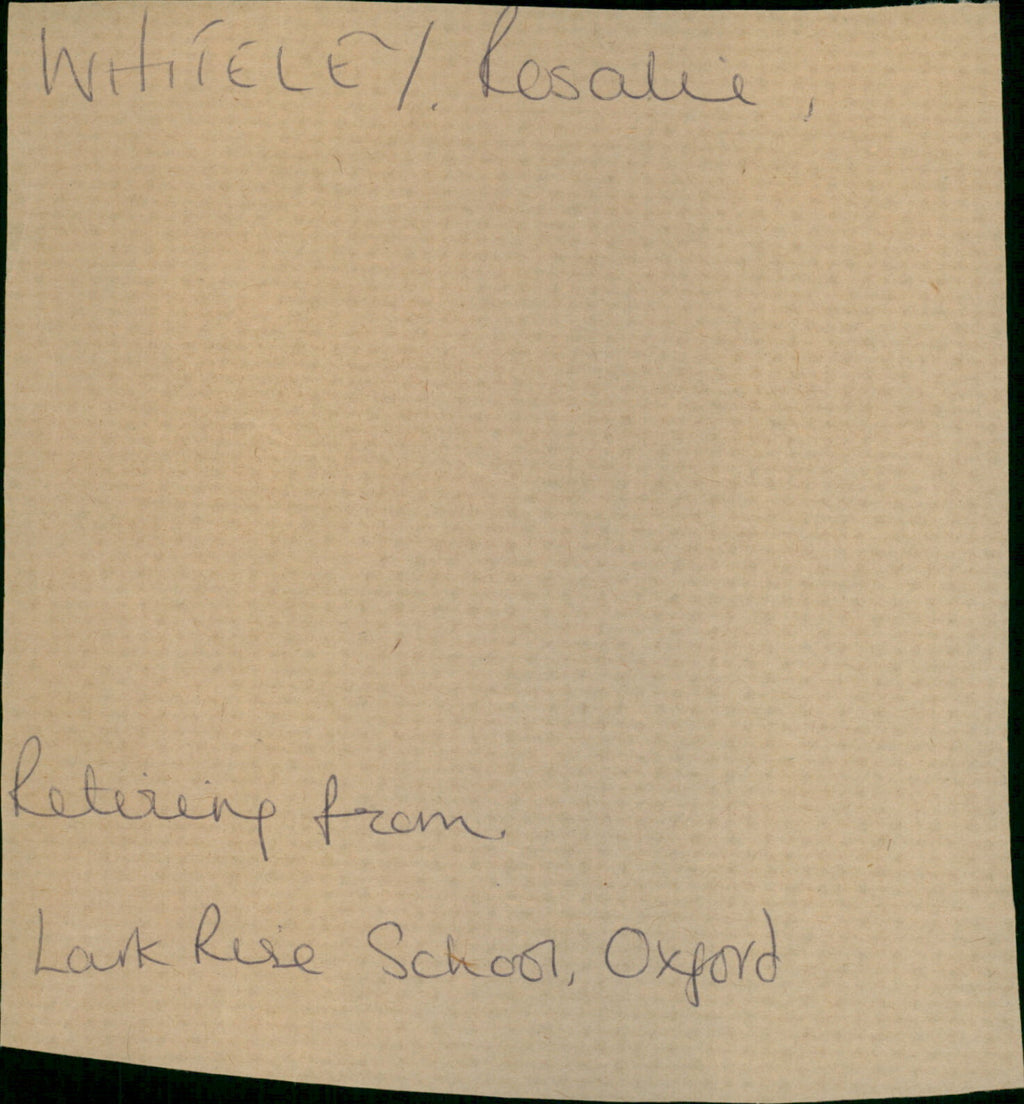 WHITELEY. Rosalie,
Retiring from.
Lark Rise School, Oxford